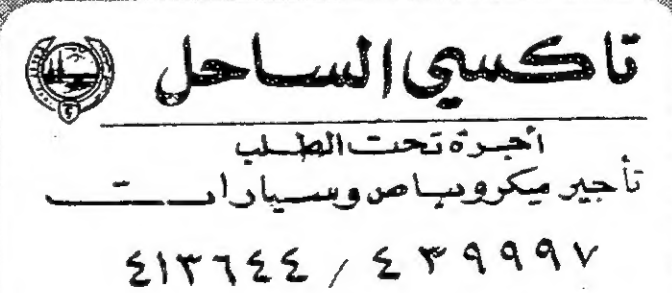 تاكسي الساحل
أجرة تحت الطلب
تأجير ميكروباص وسيارات
٤١٣٦٤٤ / ٤٣٩٩٩٧